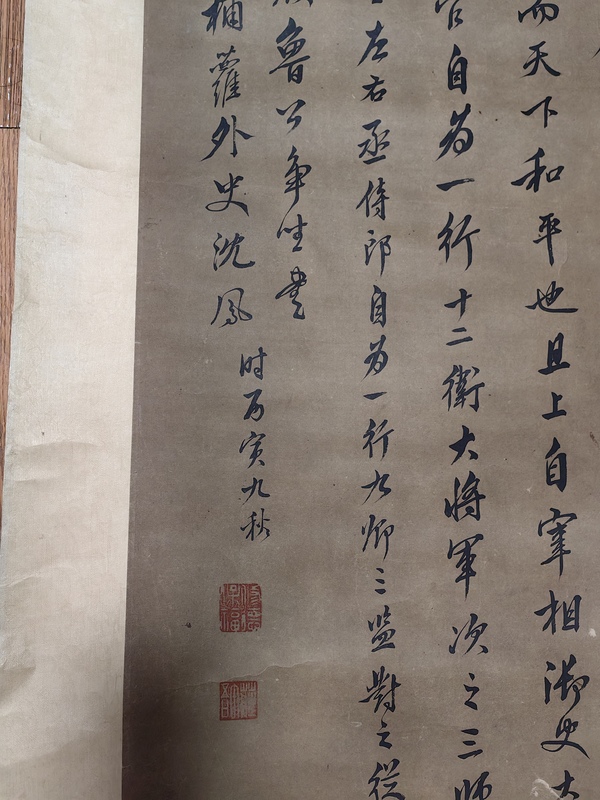 而天下和平也且上自宰相御史大
自為一行十二衛大將軍次之三師
左右丞侍郎自為一行九卿三監對之從
魯公争坐書
蘿外史沈鳳
时丙寅九秋